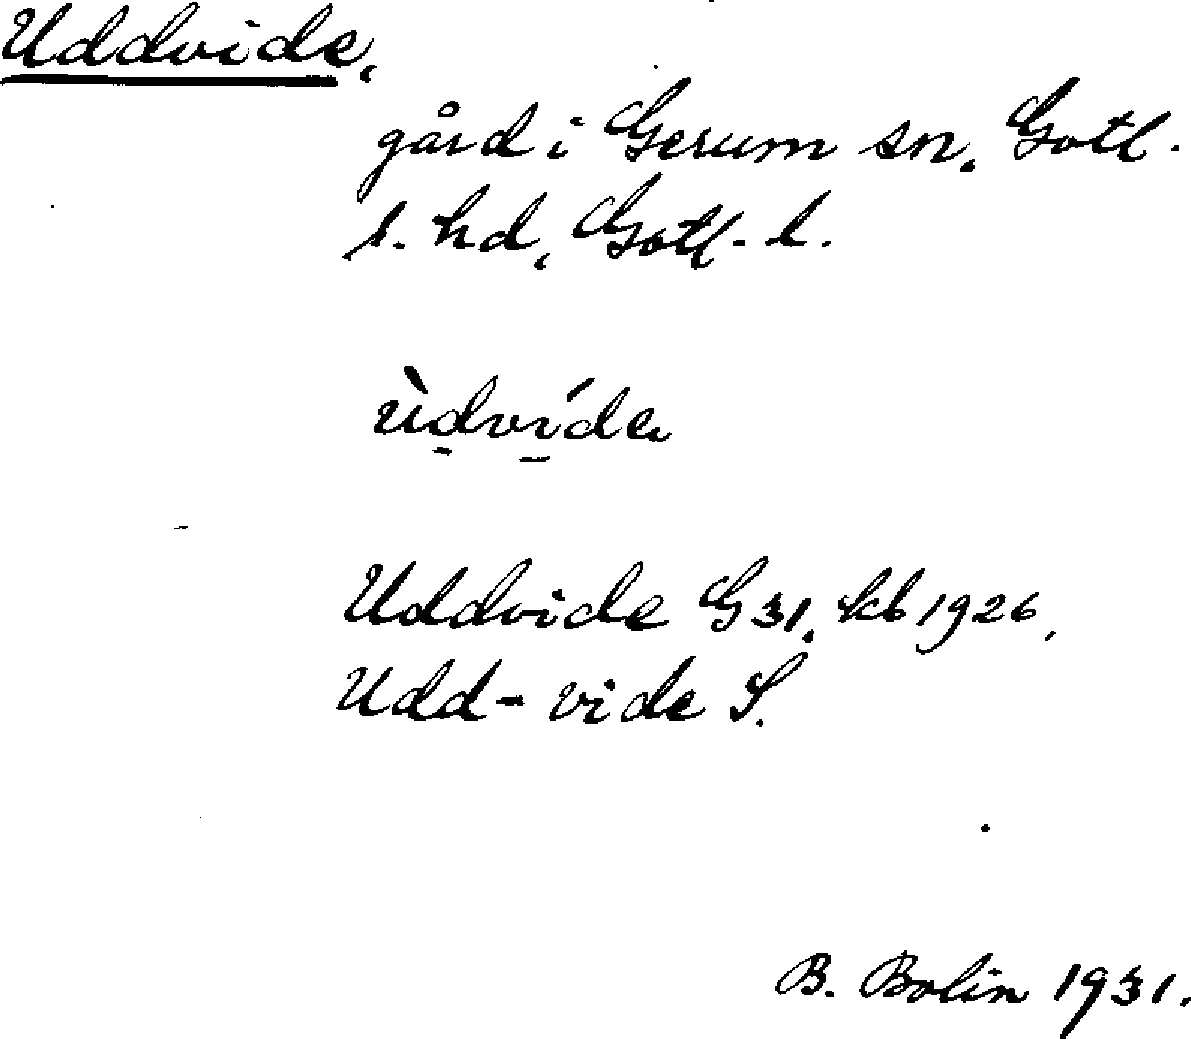 Uddvide,
gård i Gerum sn, Gotl.
s. hd, Gotl. l.
ùd̠ví̠de
Uddvide G 31, kb 1926,
Udd-vide S.
B. Bolin 1931.